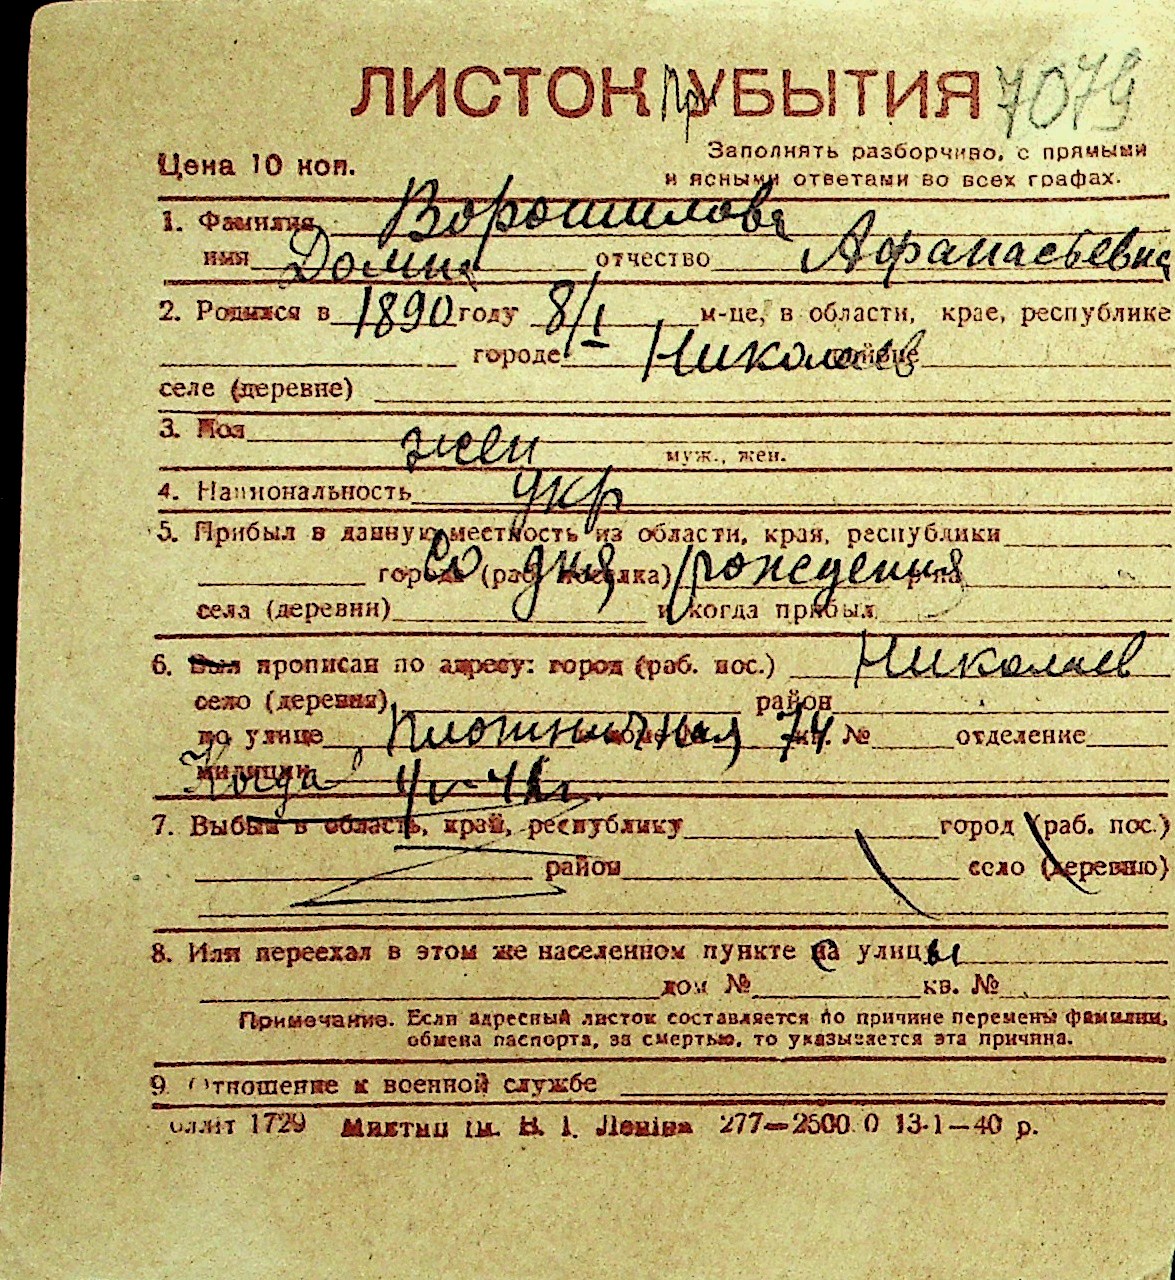 ЛИСТОК При УБЫТИЯ 7079
Цена 10 коп.
Заполнять разборчиво, с прямыми
и ясными ответами во всех графах.
1. Фамилия Ворошилова
имя Домна отчество Афанасьевна
2. Родился в 1890 году 8/I м-це, в области, крае, республике
городе Николаев районе
селе (деревне)
3. Пол жен
муж., жен.
4. Национальность укр
5. Прибыл в данную местность из области, края, республики
города (раб. поселка) Со дня рождения
села (деревни) и когда прибыл
6. Был прописан по адресу: город (раб. пос.) Николаев
село (деревня) район
по улице Плотничная 74 кв. № отделение
милиции Когда
7. Выбыл в область, край, республику город (раб. пос.)
район село (деревню)
8. Или переехал в этом же населенном пункте с улицы
дом № кв. №
Примечание. Если адресный листок составляется по причине перемены фамилии,
обмена паспорта, за смертью, то указывается эта причина.
9. Отношение к военной службе
1729 Миктип ім. В. І. Леніна 277—2500.0 13-1—40 р.